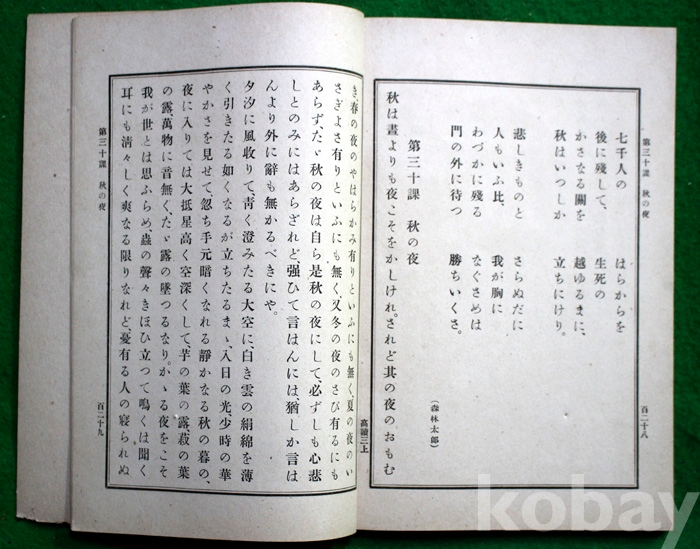 第三十課　秋の夜
百二十八
七千人の　はらからを
後に殘して、　生死の
かさなる關を　越ゆるまに、
秋はいつしか　立ちにけり。
悲しきものと　さらぬだに
人もいふ比、　我が胸に
わづかに殘る　なぐさめは
門の外に待つ　勝ちいくさ。
（森林太郎）
第三十課　秋の夜
秋は晝よりも夜こそをかしけれ。されど其の夜のおもむ
高讀三上
き、春の夜のやはらかみ有りといふにも無く、夏の夜のい
さぎよさ有りといふにも無く、又冬の夜のさび有るにも
あらず、たゞ秋の夜は自ら是秋の夜にして、必ずしも心悲
しとのみにはあらざれど、强ひて言はんには、猶しか言は
んより外に辭も無かるべきにや。
夕汐に風收りて、靑く澄みたる大空に、白き雲の絹綿を薄
く引きたる如くなるが立ちたるまゝ、入日の光、少時の華
やかさを見せて、忽ち手元暗くなれる靜かなる秋の暮の、
夜に入りては大抵星高く空深くして、芋の葉の露、萩の葉
の露、萬物に音無く、たゞ露の墜つるなり。かゝる夜をこそ
我が世とは思ふらめ、蟲の聲々きほひ立つて鳴くは聞く
耳にも淸々しく爽なる限りなれど、憂有る人の寢られぬ
第三十課　秋の夜
百二十九
kobay